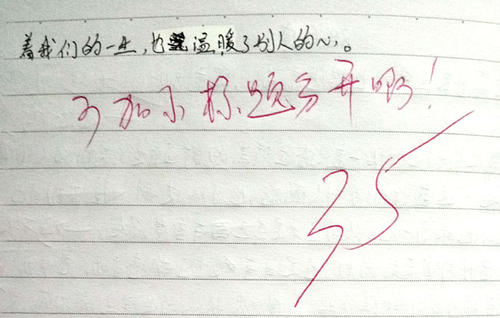 着我们的一生，也温暖了别人的心。
可加小标题分开哦！
35